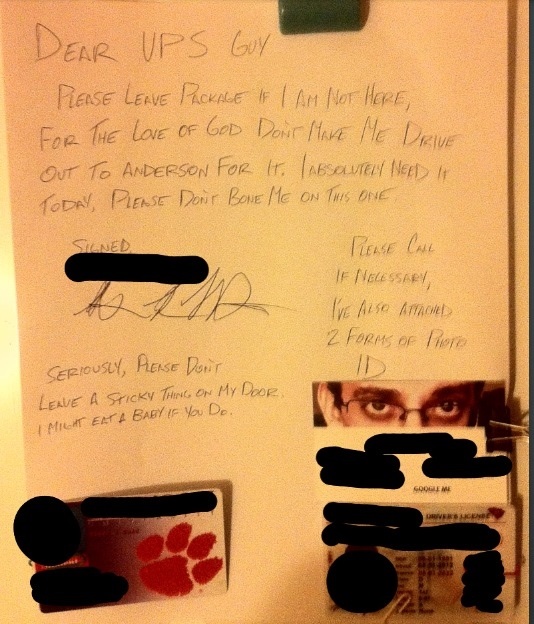 DEAR UPS GUY
PLEASE LEAVE PACKAGE IF I AM NOT HERE,
FOR THE LOVE OF GOD DON'T MAKE ME DRIVE
OUT TO ANDERSON FOR IT. I ABSOLUTELY NEED IT
TODAY, PLEASE DON'T BONE ME ON THIS ONE
SIGNED,
PLEASE CALL
IF NECESSARY,
I'VE ALSO ATTACHED
2 FORMS OF PHOTO
ID
SERIOUSLY, PLEASE DON'T
LEAVE A STICKY THING ON MY DOOR.
I MIGHT EAT A BABY IF YOU DO.
GOOGLE ME
DRIVER'S LICENSE